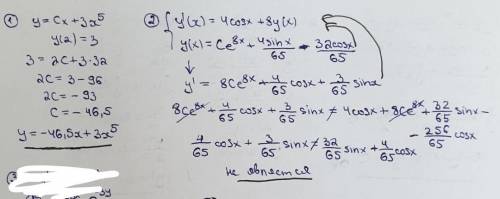 ① y = Cx + 3x⁵
y(2) = 3
3 = 2C + 3·32
2C = 3 - 96
2C = - 93
C = - 46,5
y = -46,5x + 3x⁵
② { y'(x) = 4cosx + 8y(x)
y(x) = Ce⁸ˣ + 4sinx/65 - 32cosx/65
y' = 8Ce⁸ˣ + 4/65 cosx + 3/65 sinx
8Ce⁸ˣ + 4/65 cosx + 3/65 sinx ≠ 4cosx + 8Ce⁸ˣ + 32/65 sinx -
- 256/65 cosx
4/65 cosx + 3/65 sinx ≠ 32/65 sinx + 4/65 cosx
не является